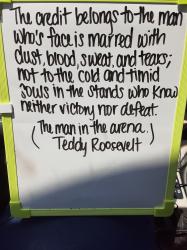 The credit belongs to the man
who's face is marred with
dust, blood, sweat, and tears;
not to the cold and timid
souls in the stands who know
neither victory nor defeat.
(The man in the arena.)
Teddy Roosevelt